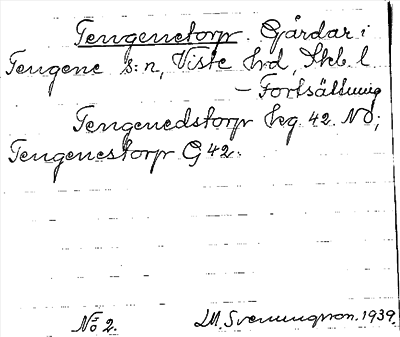 Tengenetorp. Gårdar i
Tengene s:n, Viste hrd, Skb. l
– Fortsättning
Tengenedstorp hg. 42. ND;
Tengenestorp G 42.
No 2. LM. Svenungsson. 1939.